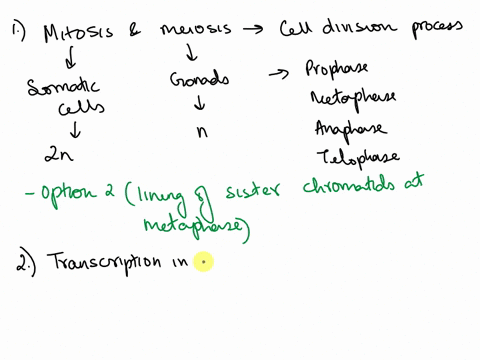 1.) Mitosis & meiosis → Cell division process
↓ ↓
Somatic cells Gonads → Prophase
↓ ↓ Metaphase
2n n Anaphase
Telophase
- Option 2 (lining of sister chromatids at
metaphase)
2.) Transcription in